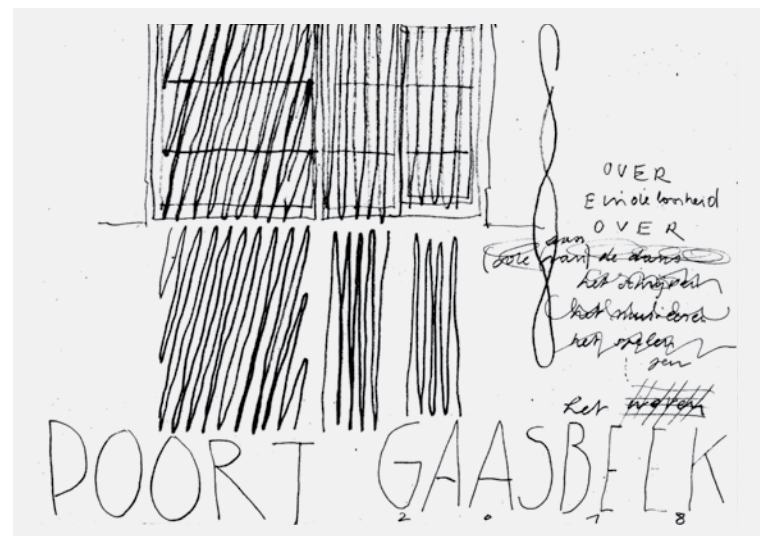 OVER
Eindeloosheid
OVER
aan
(ode van) de dans
het schrijven
het
het spelen
het weven
POORT GAASBEEK
2018